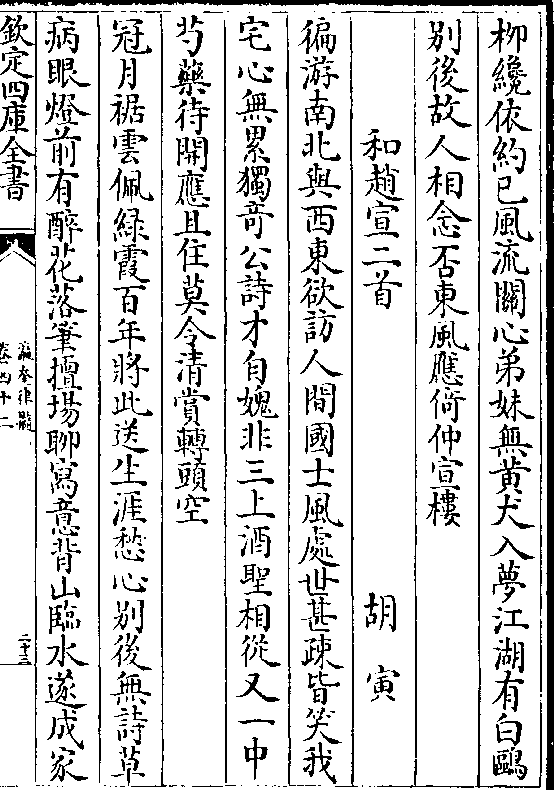 柳纔依約已風流關心弟妹無黄犬入夢江湖有白鷗
别後故人相念否東風應倚仲宣樓
和趙宣二首 胡寅
徧游南北與西東欲訪人間國士風處世甚疎皆笑我
宅心無累獨竒公詩才自媿非三上酒聖相從又一中
芍藥待開應且住莫令清賞轉頭空
冠月裾雲佩緑霞百年將此送生涯愁心别後無詩草
病眼燈前有醉花落筆擅場聊寓意背山臨水遂成家
欽定四庫全書
瀛奎律髓
卷四十二
二十三